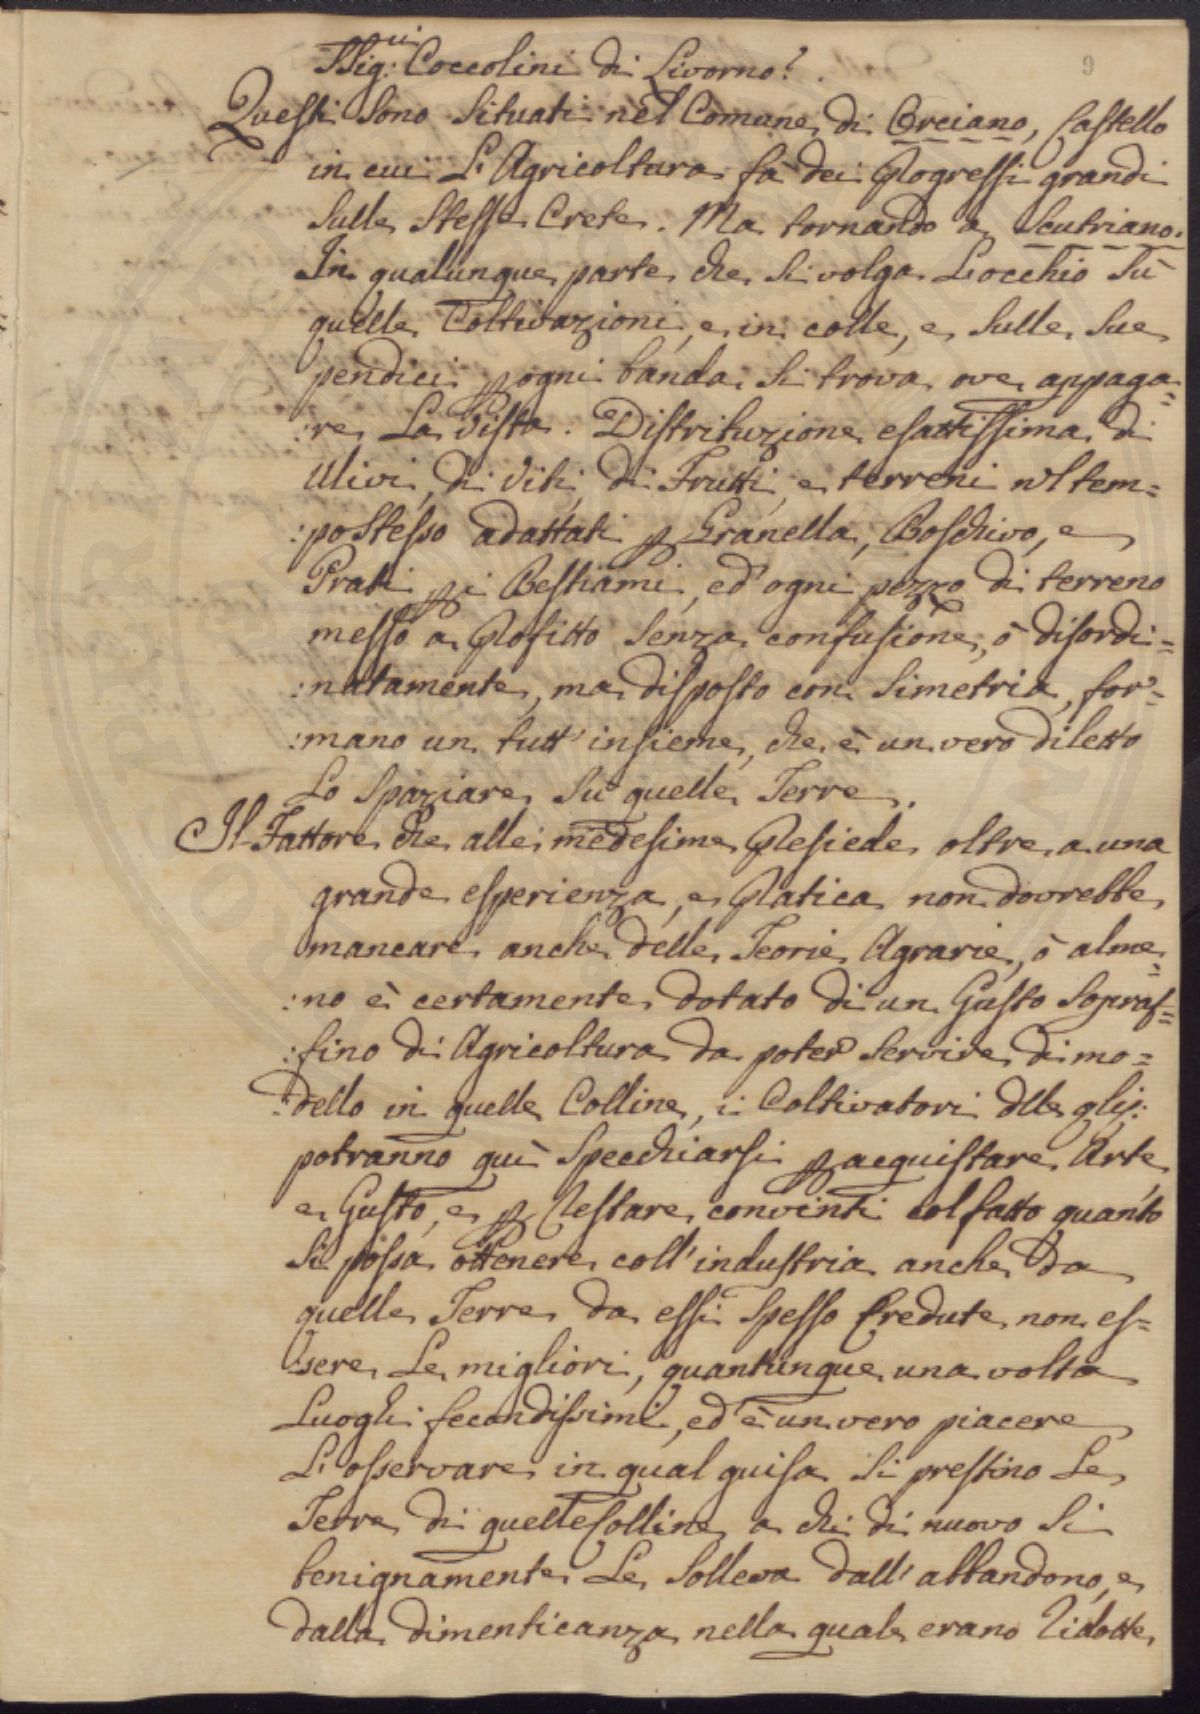 SSig:ri Coccolini di Livorno.
9
Questi sono situati nel Comune di Orciano, Castello
in cui L'Agricoltura fà dei Progressi grandi
sulle stesse Crete. Ma tornando a Scutriano.
In qualunque parte che si volga L'occhio sù
quelle Coltivazioni, e in colle, e sulle sue
pendici p ogni banda si trova ove appaga=
:re La vista. Distribuzione esattissima di
Ulivi, di Viti, di Frutti, e terreni nel tem=
:po stesso adattati p Granella, Boschivo, e
Prati p i Bestiami, ed' ogni pezzo di terreno
messo a Profitto senza confusione, ò disordi=
:natamente, ma disposto con simetria, for=
:mano un tutt' insieme, che è un vero diletto
Lo spaziare sù quelle Terre.
Il Fattore che alle medesime Presiede oltre a una
grande esperienza, e Pratica non dovrebbe
mancare anche delle Teorie Agrarie, ò alme=
:no è certamente dotato di un Gusto sopraf=
:fino di Agricoltura da poter servire di mo=
:dello in quelle Colline, i Coltivatori dlle qli:
potranno quì specchiarsi p acquistare Arte,
e Gusto, e p Restare convinti col fatto quanto
si possa ottenere coll' industria anche da
quelle Terre da essi spesso Credute non es=
:sere Le migliori, quantunque una volta
Luoghi fecondissimi, ed' è un vero piacere
L'osservare in qual guisa si prestino Le
Terre di quelle Colline a chi di nuovo si
benignamente Le solleva dall' abbandono, e
dalla dimenticanza nella quale erano Ridotte,